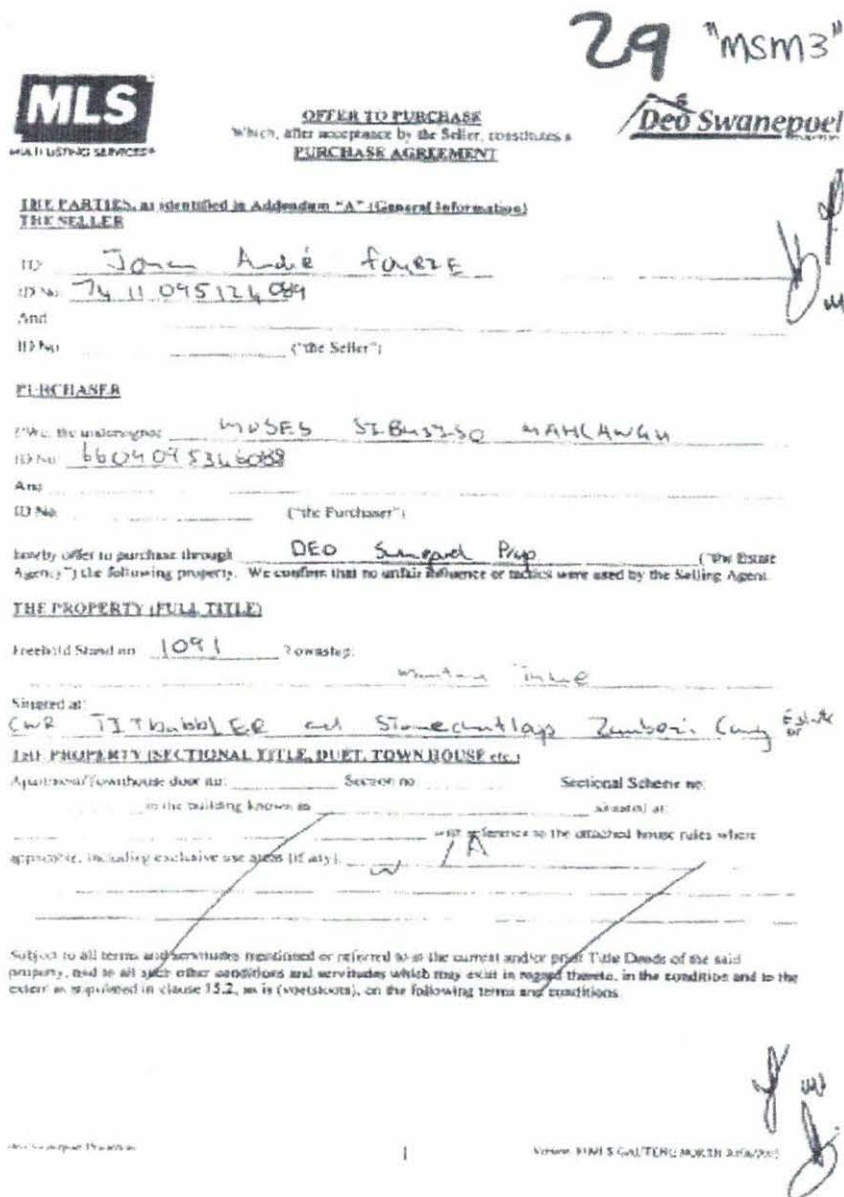 29 "MSM3"
MLS
MULTI LISTING SERVICES
OFFER TO PURCHASE
Which, after acceptance by the Seller, constitutes a
PURCHASE AGREEMENT
Deo Swanepoel
THE PARTIES, as identified in Addendum "A" (General Information)
THE SELLER
TO André FOURIE
ID No 7411095124089
And
ID No ("the Seller")
PURCHASER
I/We, the undersigned MOSES SIBUSISO MAHLANGU
ID No 6604095346088
And
ID No ("the Purchaser")
hereby offer to purchase through DEO Prop ("the Estate
Agency") the following property. We confirm that no unfair influence or tactics were used by the Selling Agent.
THE PROPERTY (FULL TITLE)
Freehold Stand no 1091 Township:
Situated at:
TITbabbLER and Estate or
THE PROPERTY (SECTIONAL TITLE, DUET, TOWN HOUSE etc.)
Apartment/Townhouse door no: Section no Sectional Scheme no:
in the building known as situated at:
with reference to the attached house rules where
applicable, including exclusive use areas (if any). N/A
Subject to all terms and servitudes mentioned or referred to in the current and/or prior Title Deeds of the said
property, and to all such other conditions and servitudes which may exist in regard thereto, in the condition and to the
extent as stipulated in clause 15.2, as is (voetstoots), on the following terms and conditions
1
GAUTENG NORTH